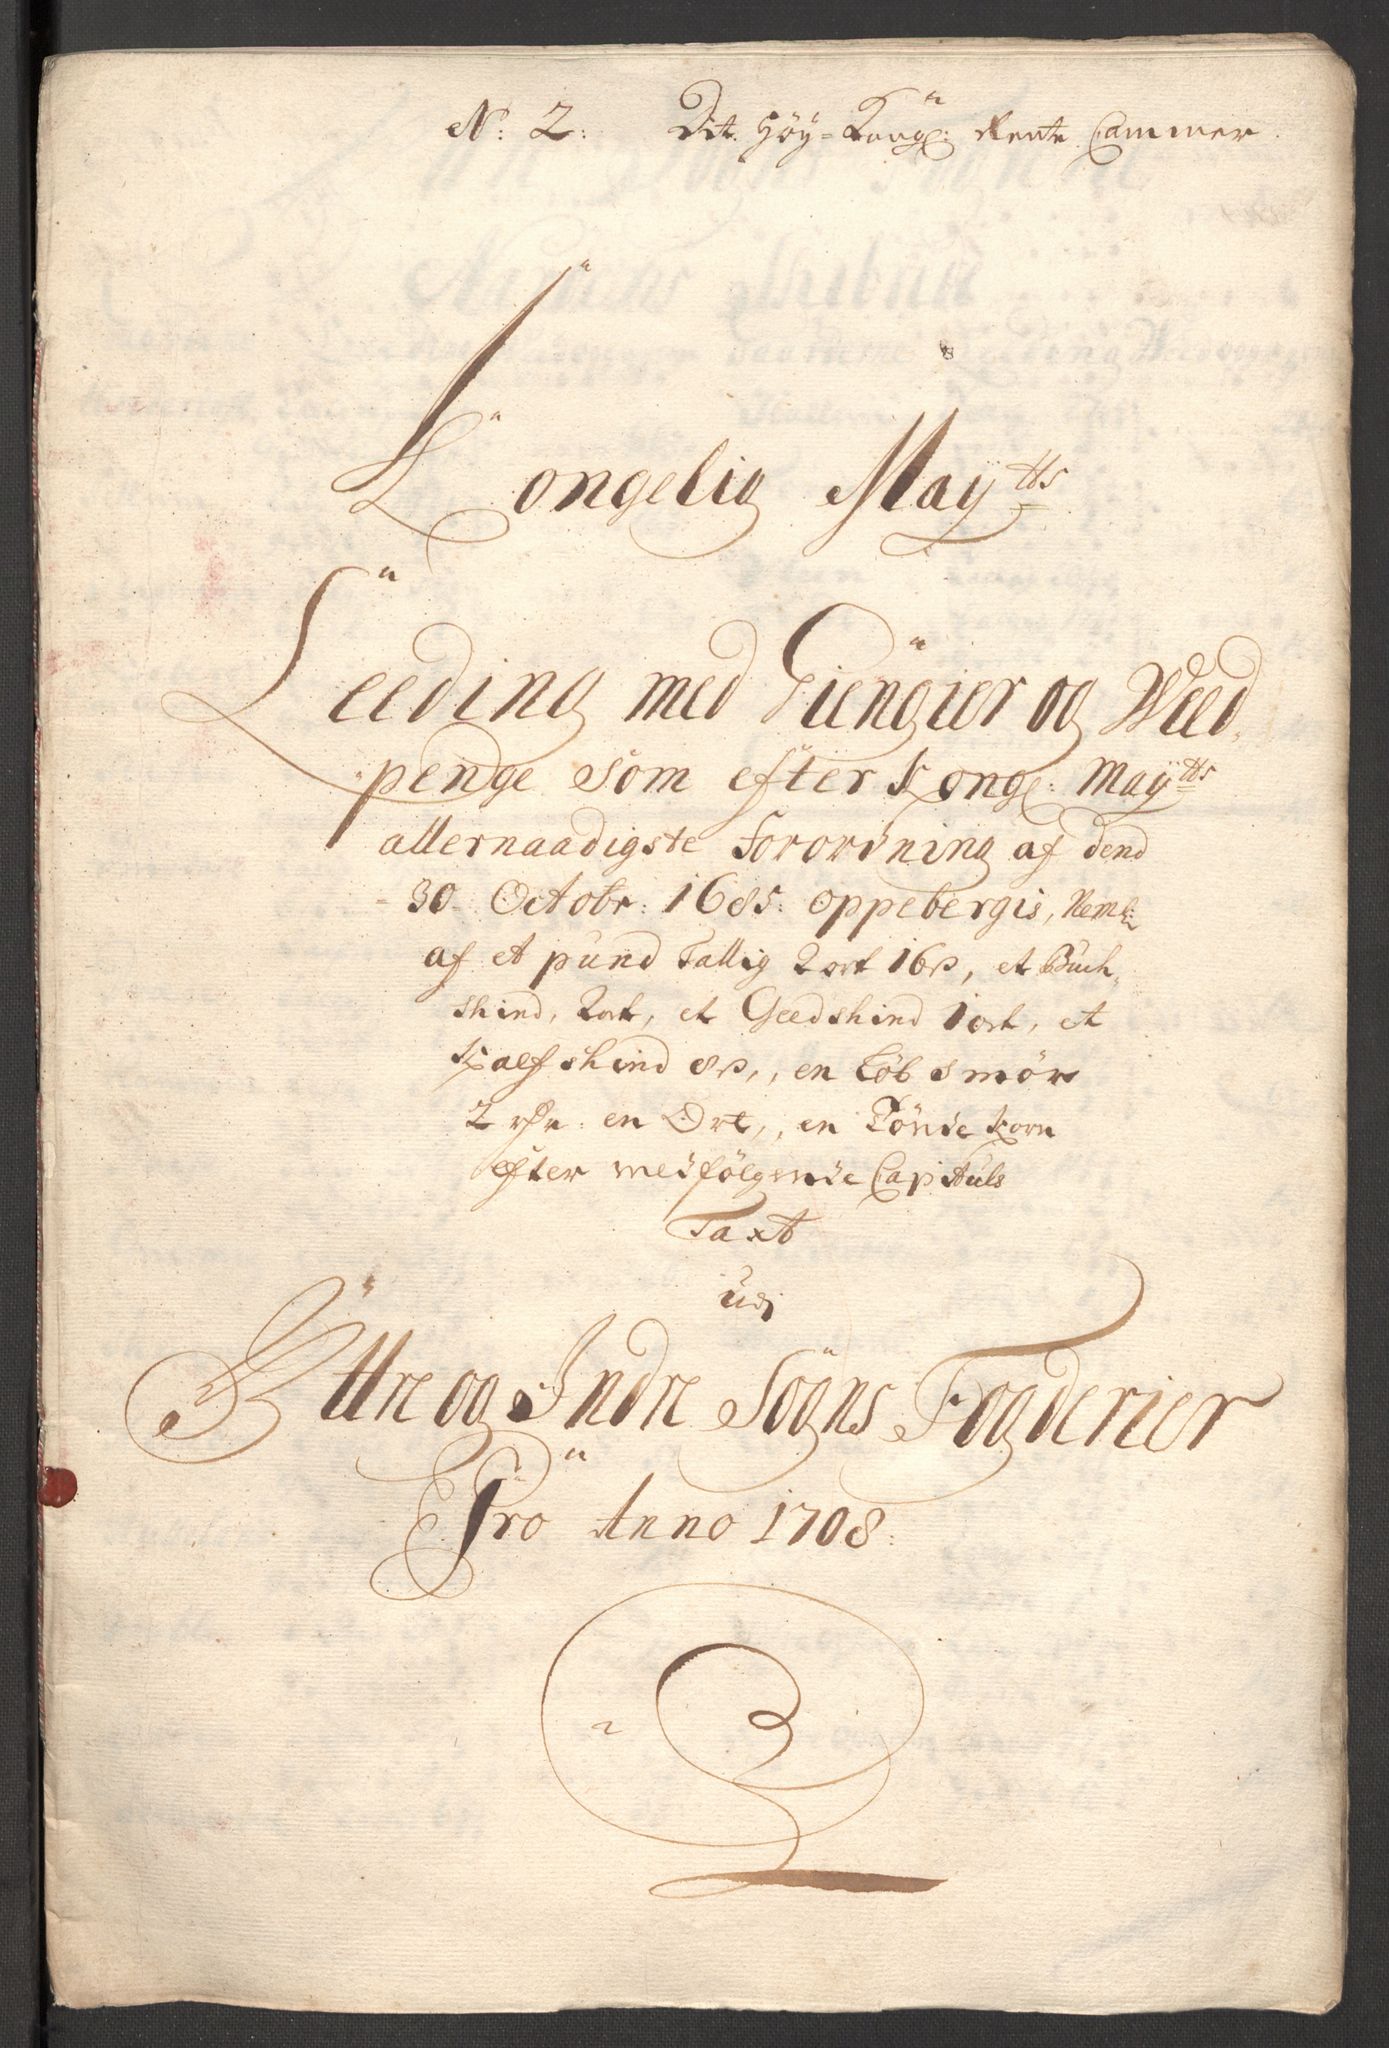 N: 2: Dit höy-Kongl: Rente Cammer.
Kongelig Maytts
Leeding med Giengier og Weed,
penge som efter Kongl: Maytts
allernaadigste Forordning af dend
30 Octobr: 1685: oppebergis, Neml:
af et pund Tallig 2 ort 16 ß, et Buch,
skind, 2 ort, et Geedskind 1 ort, et
Kalfskind 8 ß,, en Løb smör
2 rdr: en Ort,, en Tönde Korn
efter medfölgende Capituls
Taxt
udi
Yttre og Indre Sogns Fogderier
Pro Anno 1708: